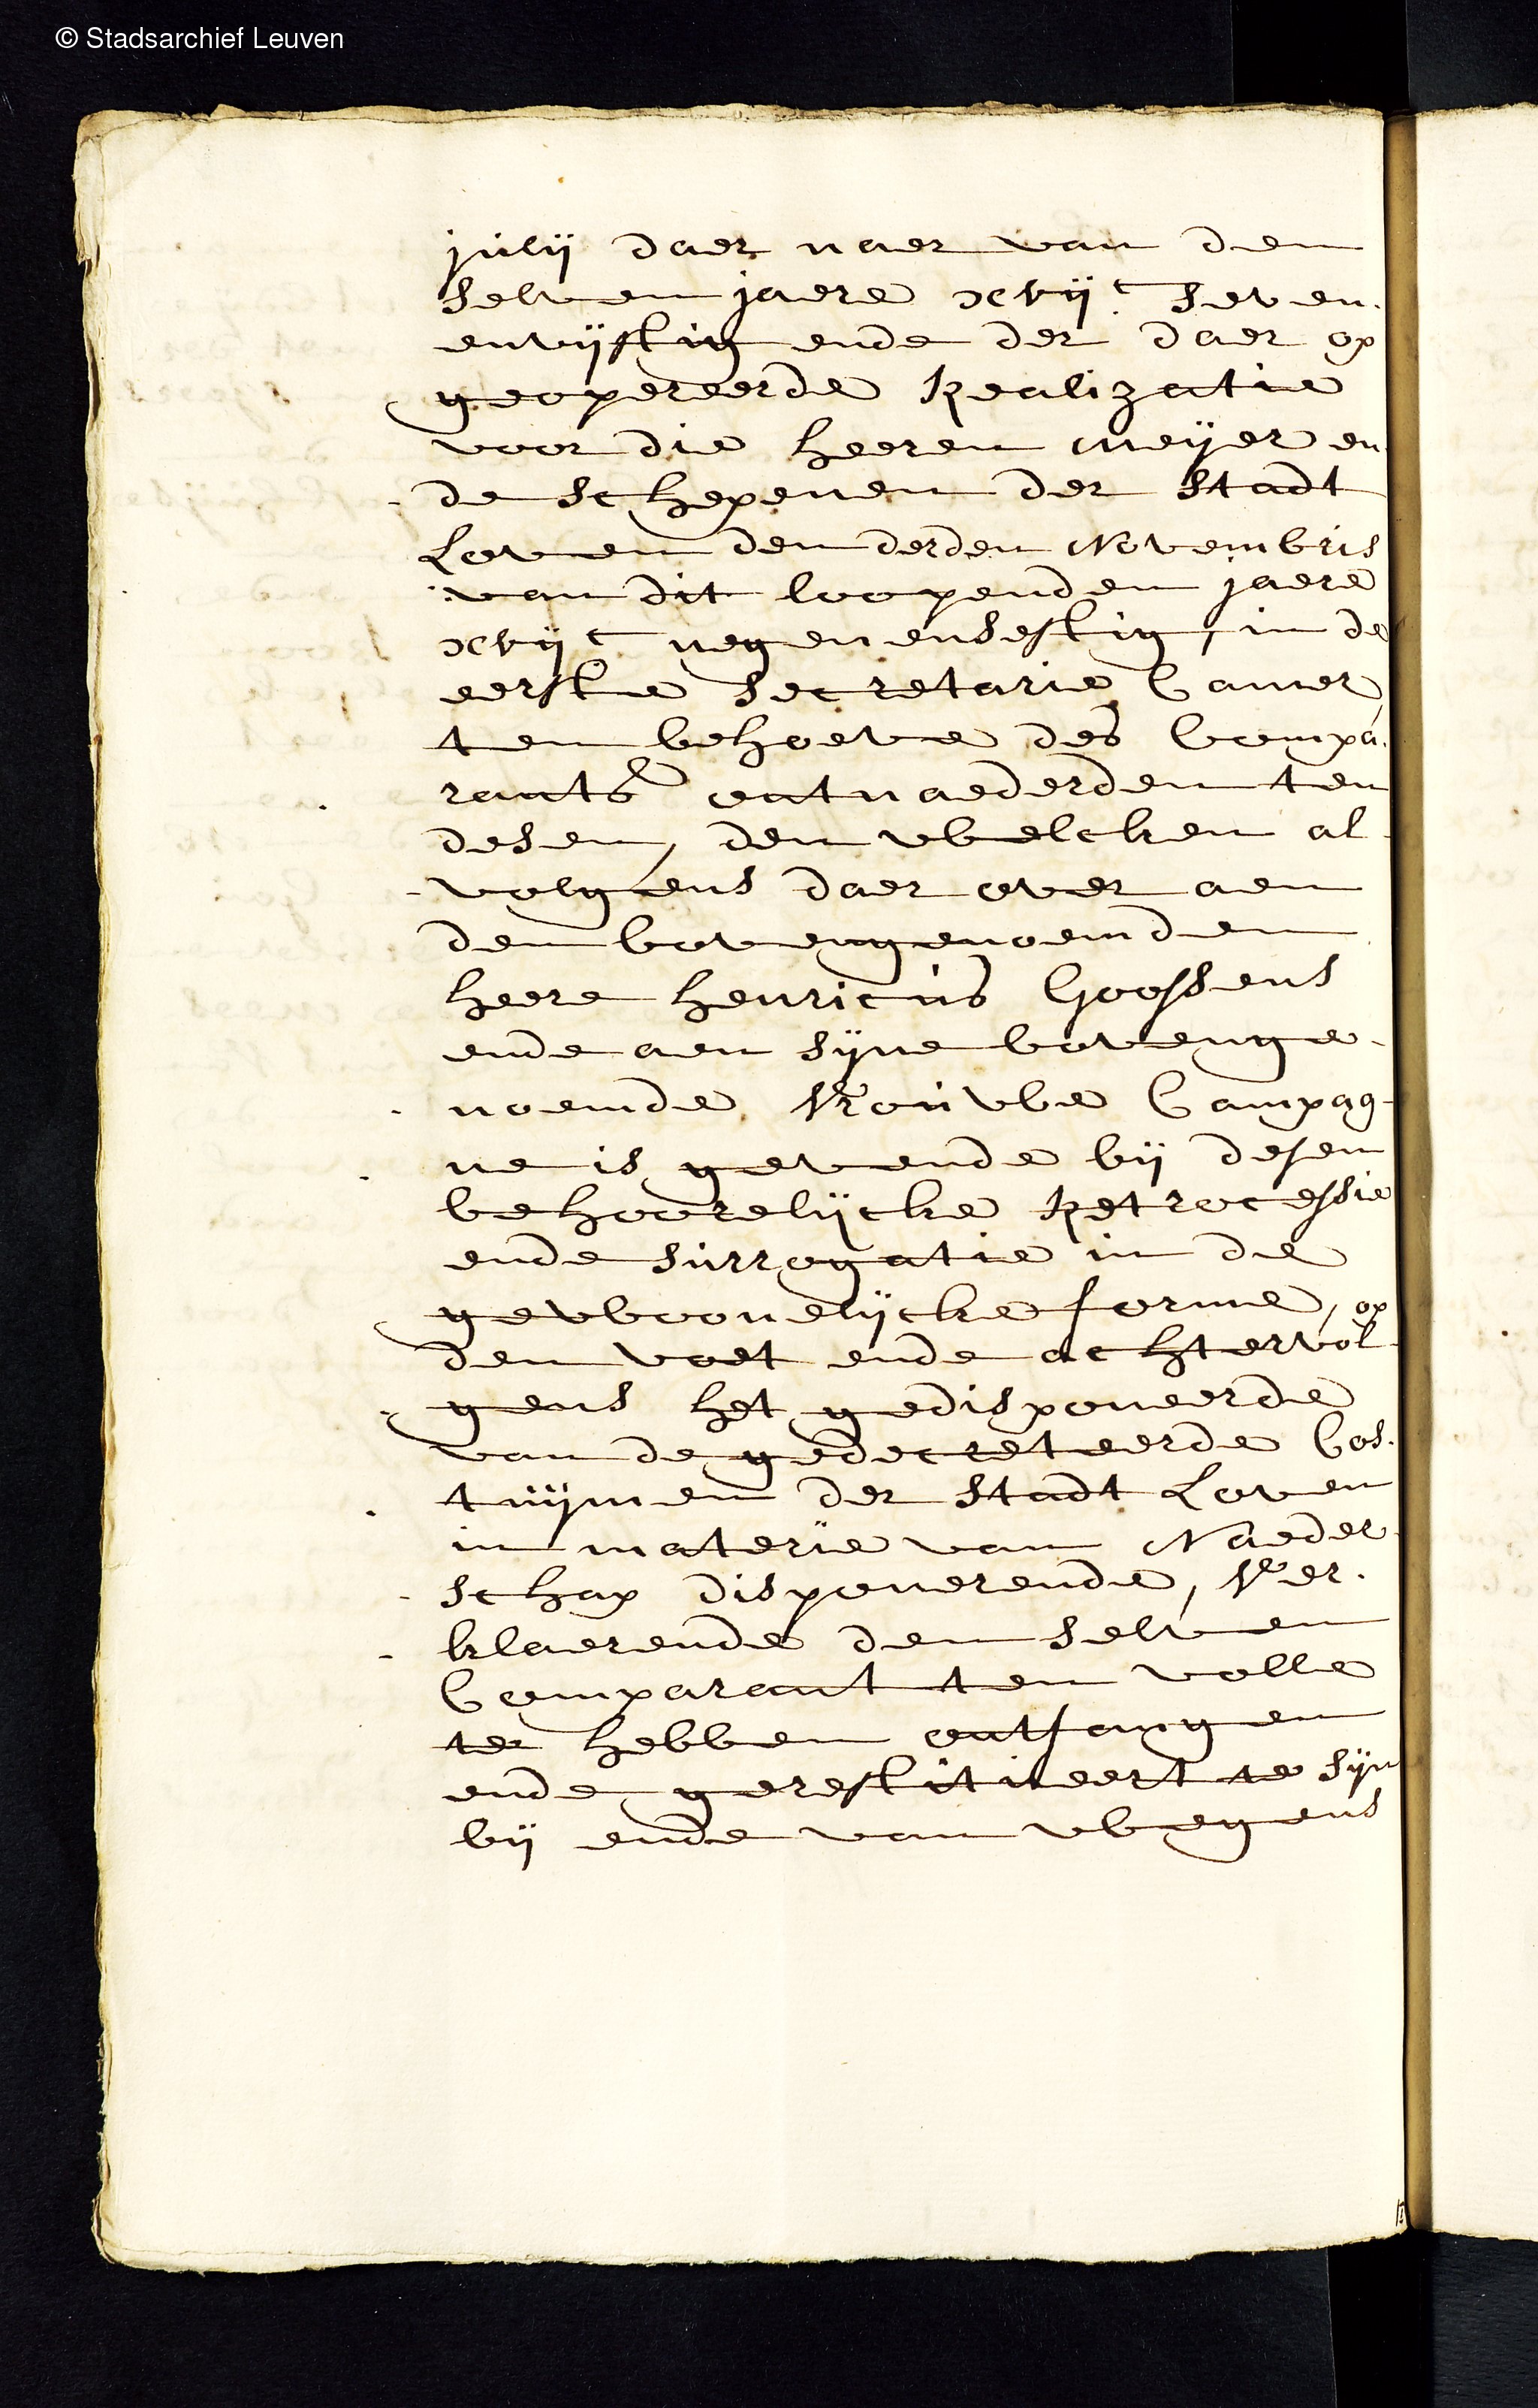 © Stadsarchief Leuven
julij daer naer van den
selven jaere xvijc seven-
envijftig ende der daer op
geopereerde Realizatie
voor die heeren meijer en-
de schepenen der Stadt
Loven den derden Novembris
van dit loopenden jaere
xvijc negenensestig, in de
eerste secretarie Camer,
ten behoeve des Compa-
rants ontnaederden ten
desen, den welcken al
volgens daer over aen
den bovengenoemden
heere henricus Goossens
ende aen sijne bovenge-
noemde Vrouwe Campag-
ne is gevende bij desen
behoorelijcke Retrocessie
ende surrogatie in de
gewoonelijcke forme, op
den voet ende achtervol-
gens het gedisponeerde
van de gedecreteerde Cos-
tuijmen der stadt Loven
in materie van Naeder-
schap disponerende, Ver-
klaerende den selven
Comparant ten volle
te hebben ontfangen
ende gerestitueert te sijn
bij ende van wegens